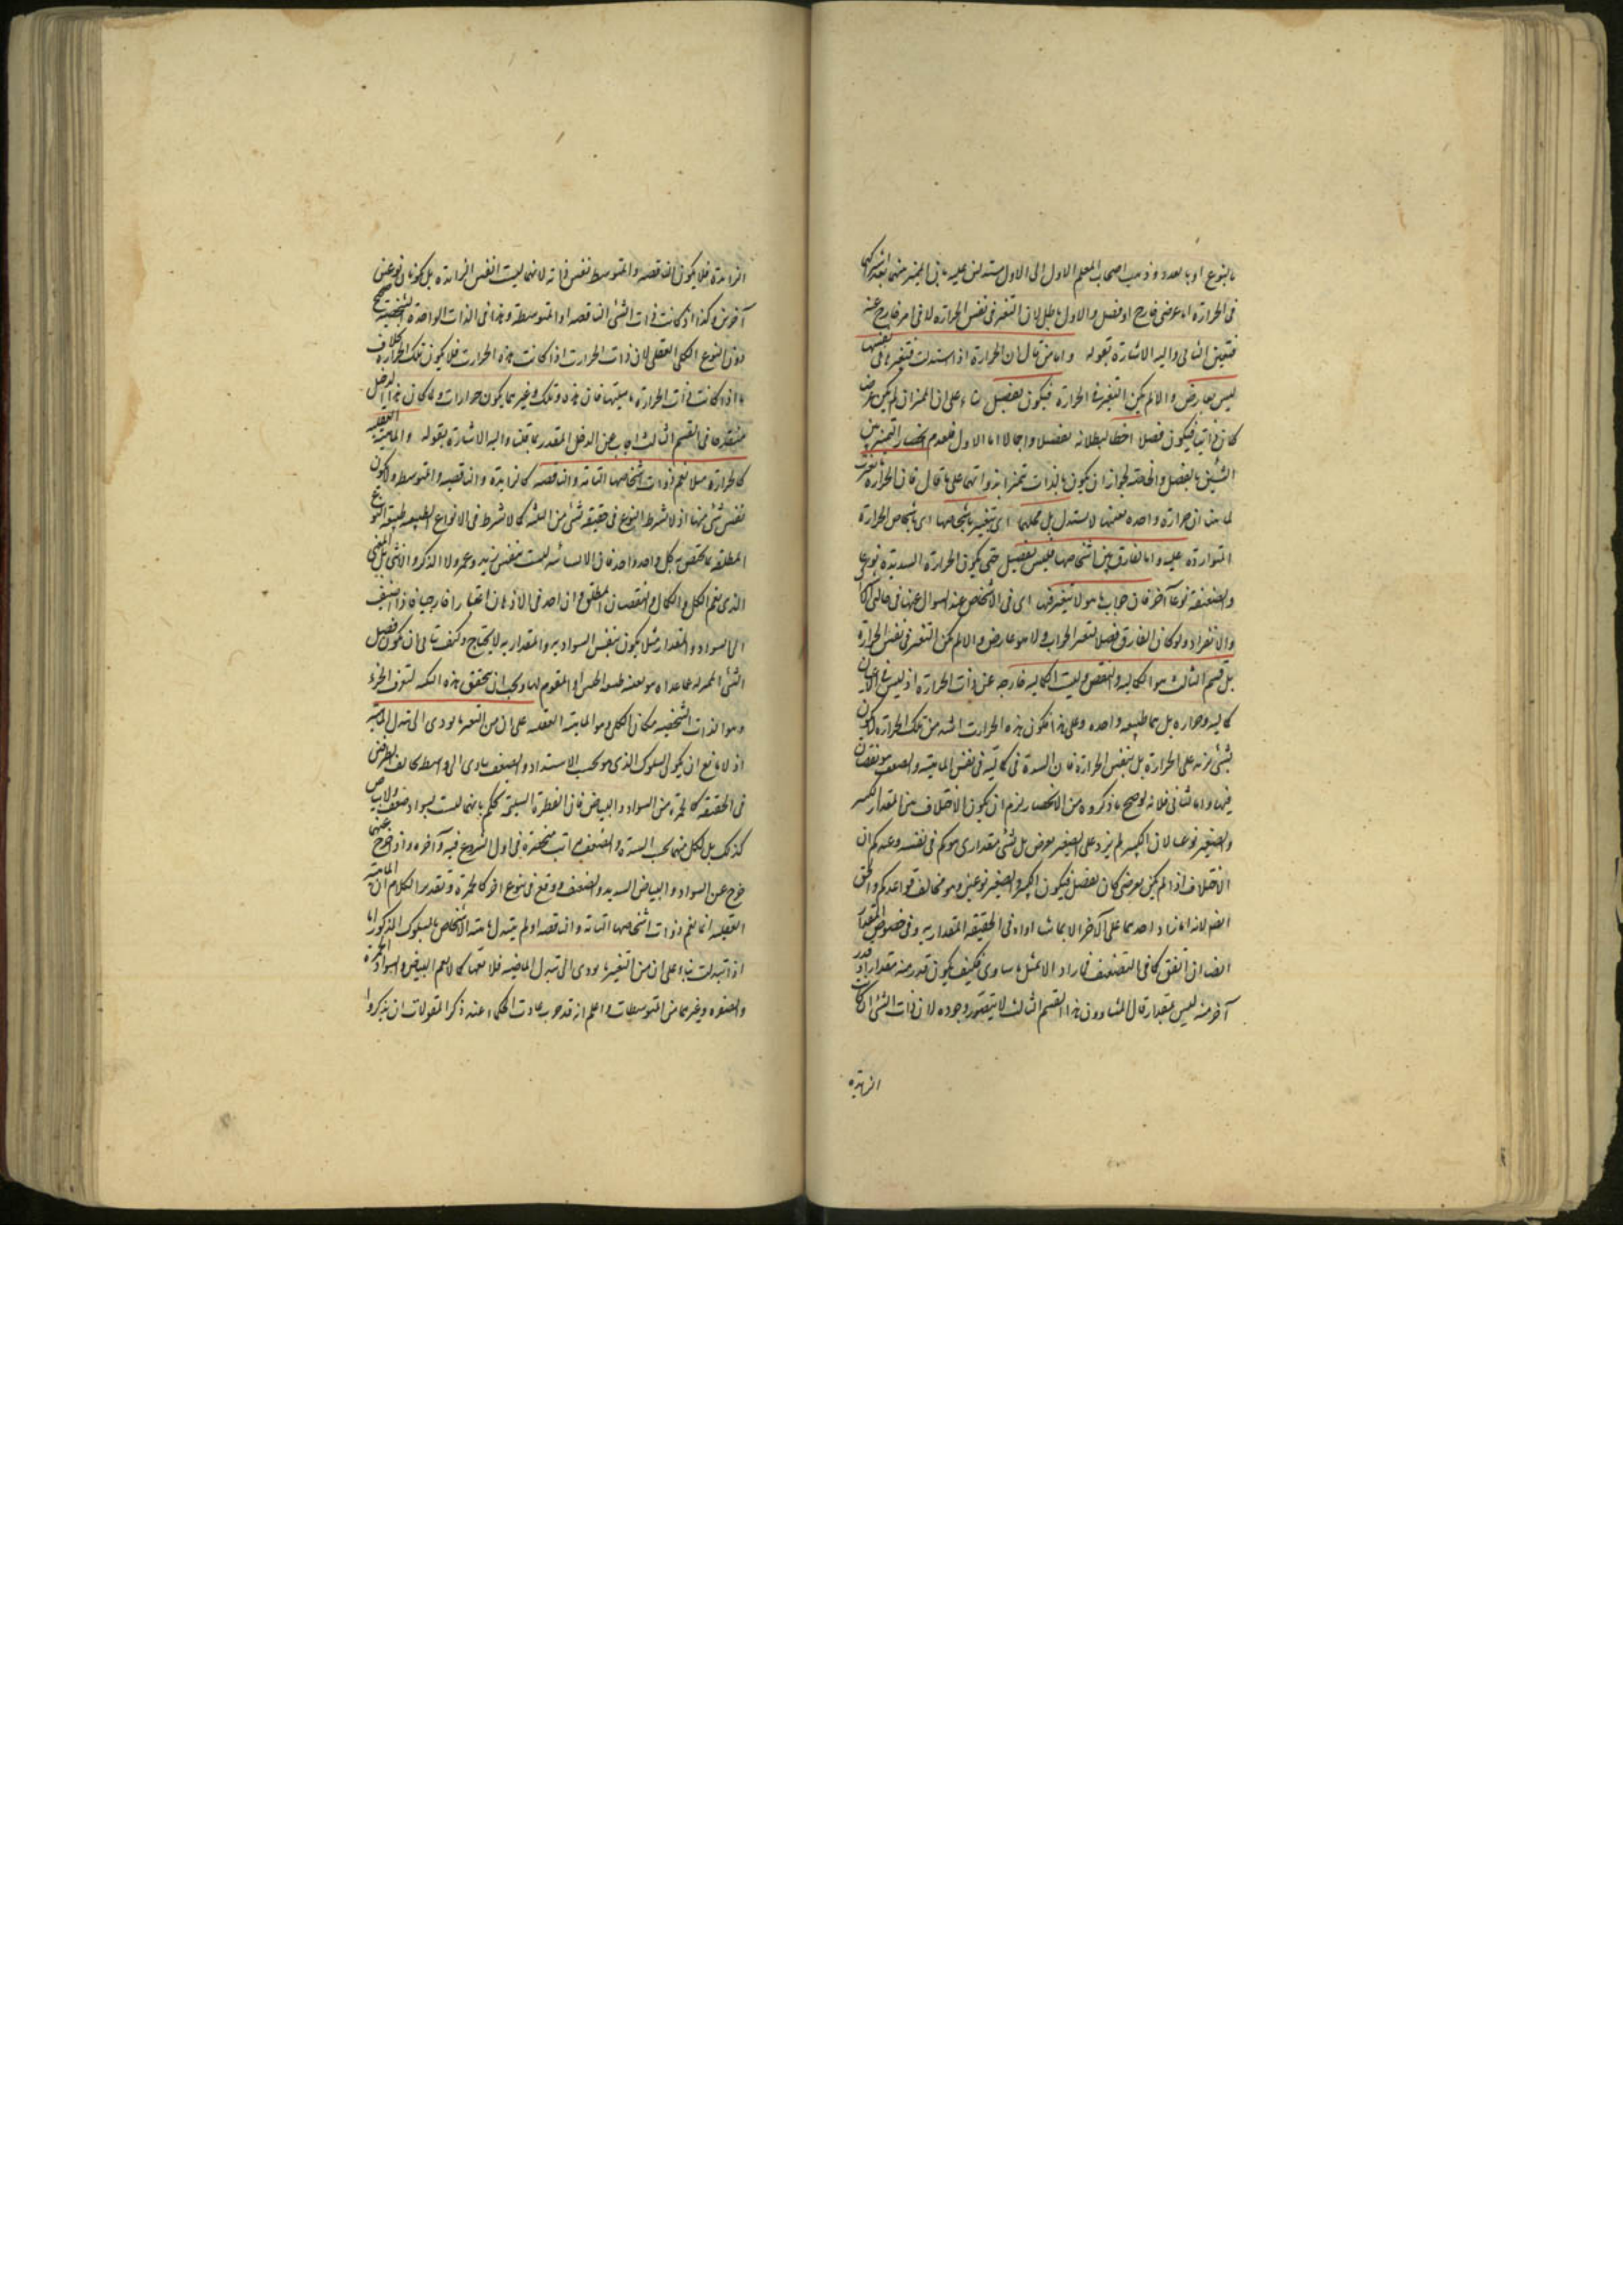 بالنوع او بالعدد وذهب اصحاب المعلم الاول الى الاول مستدلين عليه بان المميز منهما بعد اشتراكهما
فى الحرارة اما عرضى خارج او فصل والاول باطل لان التغير فى نفس الحرارة لا فى امر خارج عنه
فتعين الثانى واليه الاشارة بقوله واما من قال ان الحرارة اذا اشتدت فتغيرها فى نفسها
ليس بعارض والا لم يكن التغير فى الحرارة فيكون بفصل بناء على ان المميز ان لم يكن عرضا
كان ذاتيا فيكون فصلا اخطأ لبطلانه تفصيلا واجمالا اما الاول فلعدم انحصار التميز بين
الشيئين بالفصل والخاصة لجواز ان يكون بالذات تميزا بذواتهما على ما قال فان الحرارة ما تغيرت
لما بينا ان حرارة واحدة بعينها لا تشتد بل محلها اى يتغير باشخاصها اى باشخاص الحرارة
المتواردة عليه واما الفارق بين اشخاصها فليس بفصل حتى يكون الحرارة الشديدة نوعا
والضعيفة نوعا آخر فان جواب ما هو لا يتغير فيها اى فى الاشخاص عند السؤال عنها فى حالتى
والانفراد ولو كان الفارق فصلا لتغير الجواب ولا هو عارض والا لم يكن التغير فى نفس الحرارة
بل قسم الثالث هو الكمالية والنقص وليست الكمالية خارجة عن ذات الحرارة اذ ليس فى الاعيان
كمالية وحرارة بل هما طبيعة واحدة وعلى هذا تكون هذه الحرارت اشد من تلك الحرارة لا يكون
بشئ يزيد على الحرارة بل بنفس الحرارة فان الشدة فى كمالية فى نفس الماهية والضعف هو نقصان
فيها واما ثانى فلانه لو صح ما ذكروه من الانحصار يلزم ان يكون الاختلاف بين المقدار الكبير
والصغير نوعيا لان الكبير لم يزد على الصغير بعرض بل بشئ مقدارى هو كم فى نفسه وعندكم ان
الاختلاف اذا لم يكن بعرضى كان بفصل فيكون الكبير والصغير نوعين وهو مخالف قواعدكم والحق
ايضا لانه ما زاد احدهما على الآخر الا بما ساواه فى الحقيقة المقدارية وفى خصوص المقدار
ايضا ان اتفق كما فى التضعيف فما زاد الا بمثل ما ساوى فكيف يكون قدر منه مقدارا وقدر
آخر منه ليس بمقدار قال المشاؤون هذا القسم الثالث لا يتصور وجوده لان ذات الشئ ان كانت
الزايدة
الزايدة فلا يكون الناقصة والمتوسط نفس ذاته لانهما ليست نفس الزايدة بل يكونان نوعين
آخرين وكذا اذ كانت ذات الشئ الناقصة او المتوسطة وهذا فى الذات الواحدة الشخصية صحيح
دون النوع الكلى العقلى لان ذات الحرارت اذا كانت هذه الحرارت فلا يكون تلك الحرارة بخلاف
ما اذا كانت ذات الحرارة ماهيتها فان هذه وتلك وغيرهما يكون حرارات ولما كان هذا الدخل
منقدحا فى القسم الثالث اجاب عن الدخل المقدر بما قلت واليه الاشارة بقوله والماهية العقلية
كالحرارة مثلا تعم ذوات اشخاصها التامة والناقصة كالزايدة والناقصة والمتوسطة ولا يكون
نفس شئ منها اذ لا شرط النوع فى حقيقة شئ من الثلثة كما لا شرط فى الانواع الطبيعة طبيعة النوع
المطلقة بما تختص به كل واحد واحد فان الانسانية ليست بنفس زيد وعمرو ولا الذكر والانثى بل المعنى
الذى يعم الكل والكمال والنقصان المطلق وان اخذ فى الاذهان اعتبارا خارجيا فاذا اضيف
الى السواد والمقدار مثلا يكون بنفس السوادية والمقدارية لا يحتاج
وهو الذات الشخصية مكان الكلى وهو الماهية العقلية على ان من التغير ما يؤدى الى تبدل الماهية
اذ لا مانع ان يكون السلوك الذى هو بحسب الاشتداد والضعف يتادى الى واسطة مخالف للطرفين
فى الحقيقة كالحمرة من السواد والبياض فان الفطرة السليمة تحكم بانها ليست بسواد ضعيف ولا بياض
كذلك بل لكل منهما بحسب الشدة والضعف مراتب منحصرة فى اول الشروع فيه وآخره واذا خرج عنهما
خرج عن السواد والبياض الشديد والضعيف ووقع فى نوع آخر كالحمرة وتقدير الكلام ان الماهية
العقلية انما تعم ذوات اشخاصها التامة والناقصة لو لم يتبدل ماهية الاشخاص بالسلوك المذكور اما
اذا تبدلت بناء على ان من التغير ما يؤدى الى تبدل الماهية فلا تعمها كما لا يعم البياض والسواد الحمرة
والصفرة وغيرهما من المتوسطات واعلم انه قد جرت عادت الحكماء عند ذكر المقولات ان يذكروا